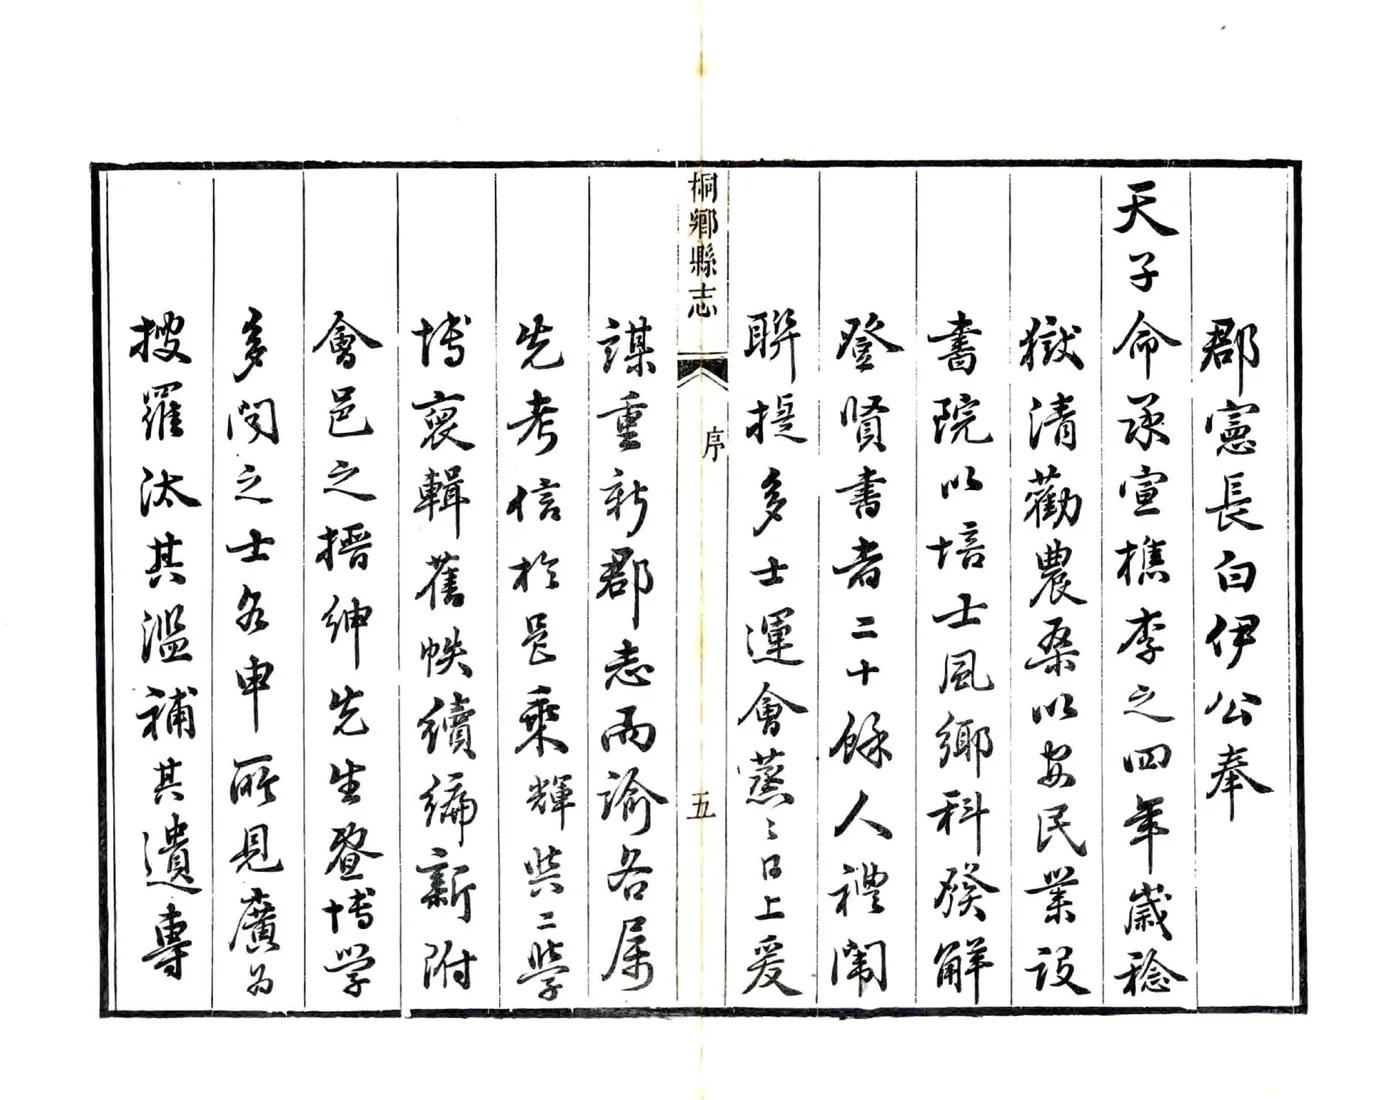 郡憲長白伊公奉
天子命承宣檇李之四年歲稔
獄清勸農桑以安民業設
書院以培士風鄉科發解
登賢書者二十餘人禮闈
聯捷多士運會蒸〻日上爰
桐鄉縣志
序
五
謀重新郡志而諭各属
先考信於邑乘輝與二學
博裒輯舊帙續編新附
會邑之搢紳先生暨博学
多聞之士各申所見廣為
搜羅汰其濫補其遺專